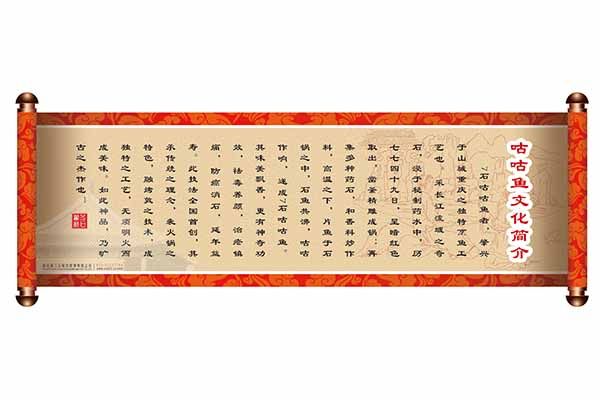 咕咕鱼文化简介
7石咕咕鱼者，肇兴
于山城重庆之独特烹鱼工
艺也。采长江流域之奇
石，浸于秘制药水中，历
七七四十九日，呈暗红色
取出，凿釜精雕成锅；再
集多种药石，和香料炒作
料，高温之下，片鱼于
锅之中，石鱼共沸，咕咕
作响，遂成7石咕咕鱼。
其味美飘香，更有神奇功
效，祛毒养颜，治愈镇
痛，防癌消石，延年益
寿。此技法全国首创，其
承传统之理念，乘火锅之
特色，融烤炙之技术，成
独特之工艺，无须明火而
成美味。如此神品，乃旷
古之杰作也！